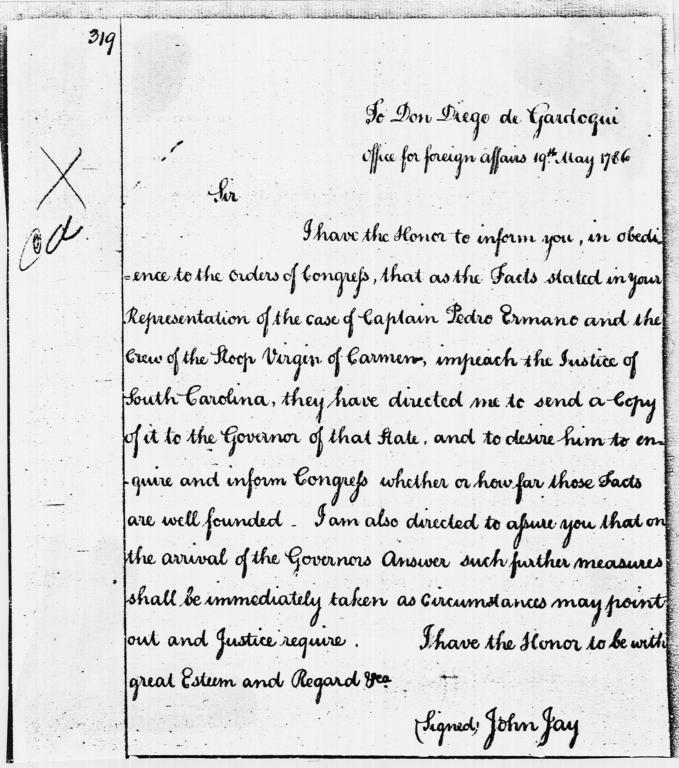 319
To Don Diego de Gardoqui
Office for foreign affairs 19th May 1786
Sir
I have the Honor to inform you, in obedi-
-ence to the orders of Congress, that as the Facts stated in your
Representation of the case of Captain Pedro Ermano and the
Crew of the Sloop Virgin of Carmen, impeach the Justice of
South Carolina, they have directed me to send a Copy
of it to the Governor of that State, and to desire him to en-
-quire and inform Congress whether or how far those Facts
are well founded - I am also directed to assure you that on
the arrival of the Governors Answer such further measures
shall be immediately taken as Circumstances may point
out and Justice require. I have the Honor to be with
great Esteem and Regard &ca
(Signed) John Jay